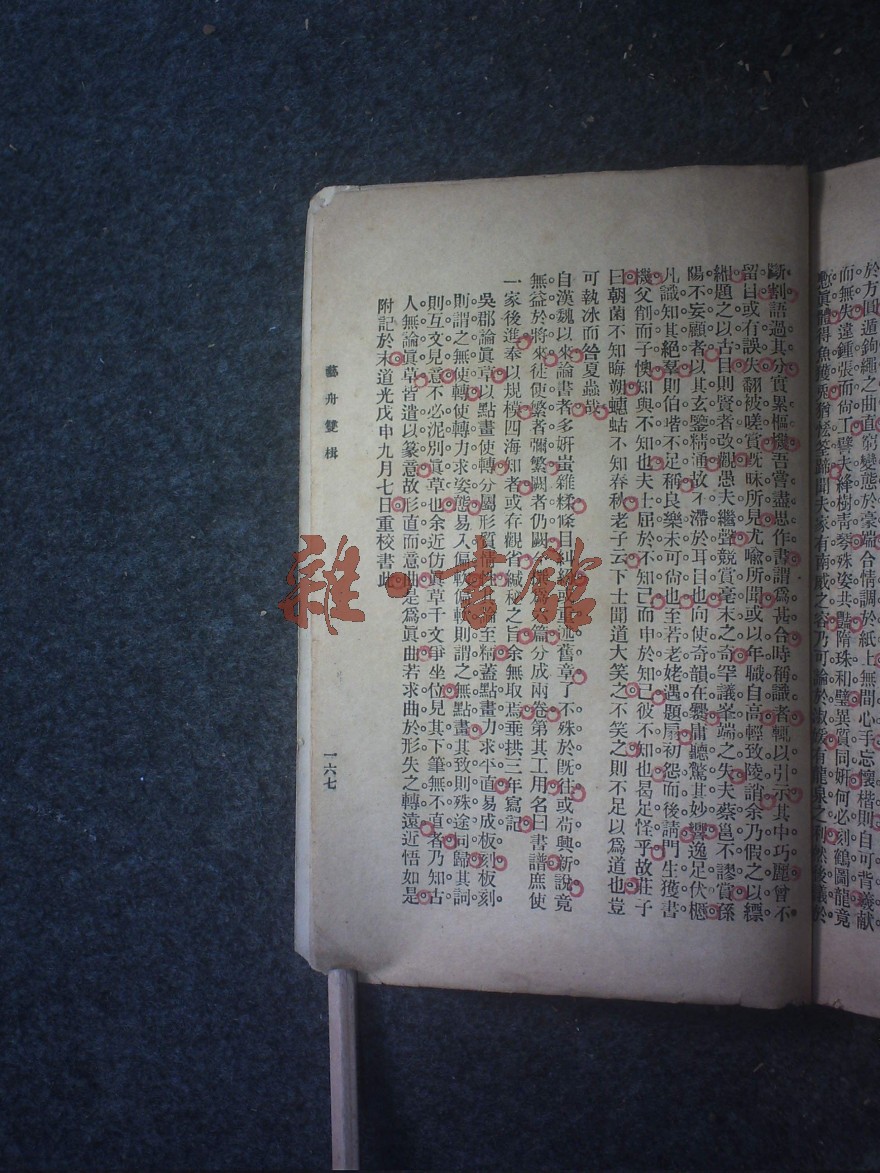 於方圓。遁鉤繩之曲直。窮變態於毫端。合情調於紙上。無間心手。忘懷楷則。自可背羲献
而無失。違鍾張而尚工。譬夫絳樹青琴。殊姿共豔。隋珠和璧。異質同妍。何必刻鶴圖龍。竟
慙眞體。得魚獲兔。猶恡筌蹄。聞夫家有南威之容。乃可論於淑媛。有龍泉之利。然後議於
斷割。語過其分。實累樞機。吾嘗盡思作書。謂爲甚合。時稱識者。輒以引示。其中巧麗。曾不
留目。或有誤失。翻被嗟賞。旣昧所見。尤喻所聞。或以年職自高。輕致陵誚。余乃假之以縹
緗。題之以古目。則賢者改觀。愚夫繼聲。競賞毫末之奇。罕議峯端之失。夫蔡邕不謬賞。孫
陽不妄顧者。以其玄鑒精通。故不滯於耳目也。向使奇韻在爨。庸聽驚其妙響。逸足伏櫪。
凡識知其絕羣。則伯喈不足稱。良樂未可尚也。至若老姥遇題扇。初怨而後請。門生獲書
機。父削而子懊。知與不知也。夫士屈於不知己。而申於知己。彼不知也。曷足怪乎。故莊子
曰。朝菌不知晦朔。蟪蛄不知春秋。老子云。下士聞道大笑之。不笑之則不足以爲道也。豈
可執冰而咎夏蟲哉。
自漢魏以來。論書者多。妍蚩雜糅。條目糾紛。或重述舊章。了不殊於旣往。或苟興新說。竟
無益於將來。徒使繁者彌繁。闕者仍闕。今撰爲六篇。分成兩卷。第其工用。名曰書譜。庶使
一家後進。奉以規模。四海知者。或存觀省。緘秘之旨。余無取焉。垂拱三年寫記。
吳郡論眞草。以點畫使轉。分屬形質情性。其論至精。蓋點畫力求平直。易成板刻。板刻
則謂之無使轉。使轉力求姿態。易入偏軟。偏軟則謂之無點畫。其致則殊途同歸。其詞
則互文見意。不必泥別眞草也。余近仿眞草千文爭坐位。見其下筆無不直者。乃知古
人無論眞草。皆遣以篆意。故形直而意曲。是爲眞曲。若求曲於形。失之轉遠。近悟如是。
附記於末。道光戊申九月七日重校書此。
藝舟雙楫
一六七
雜·書館